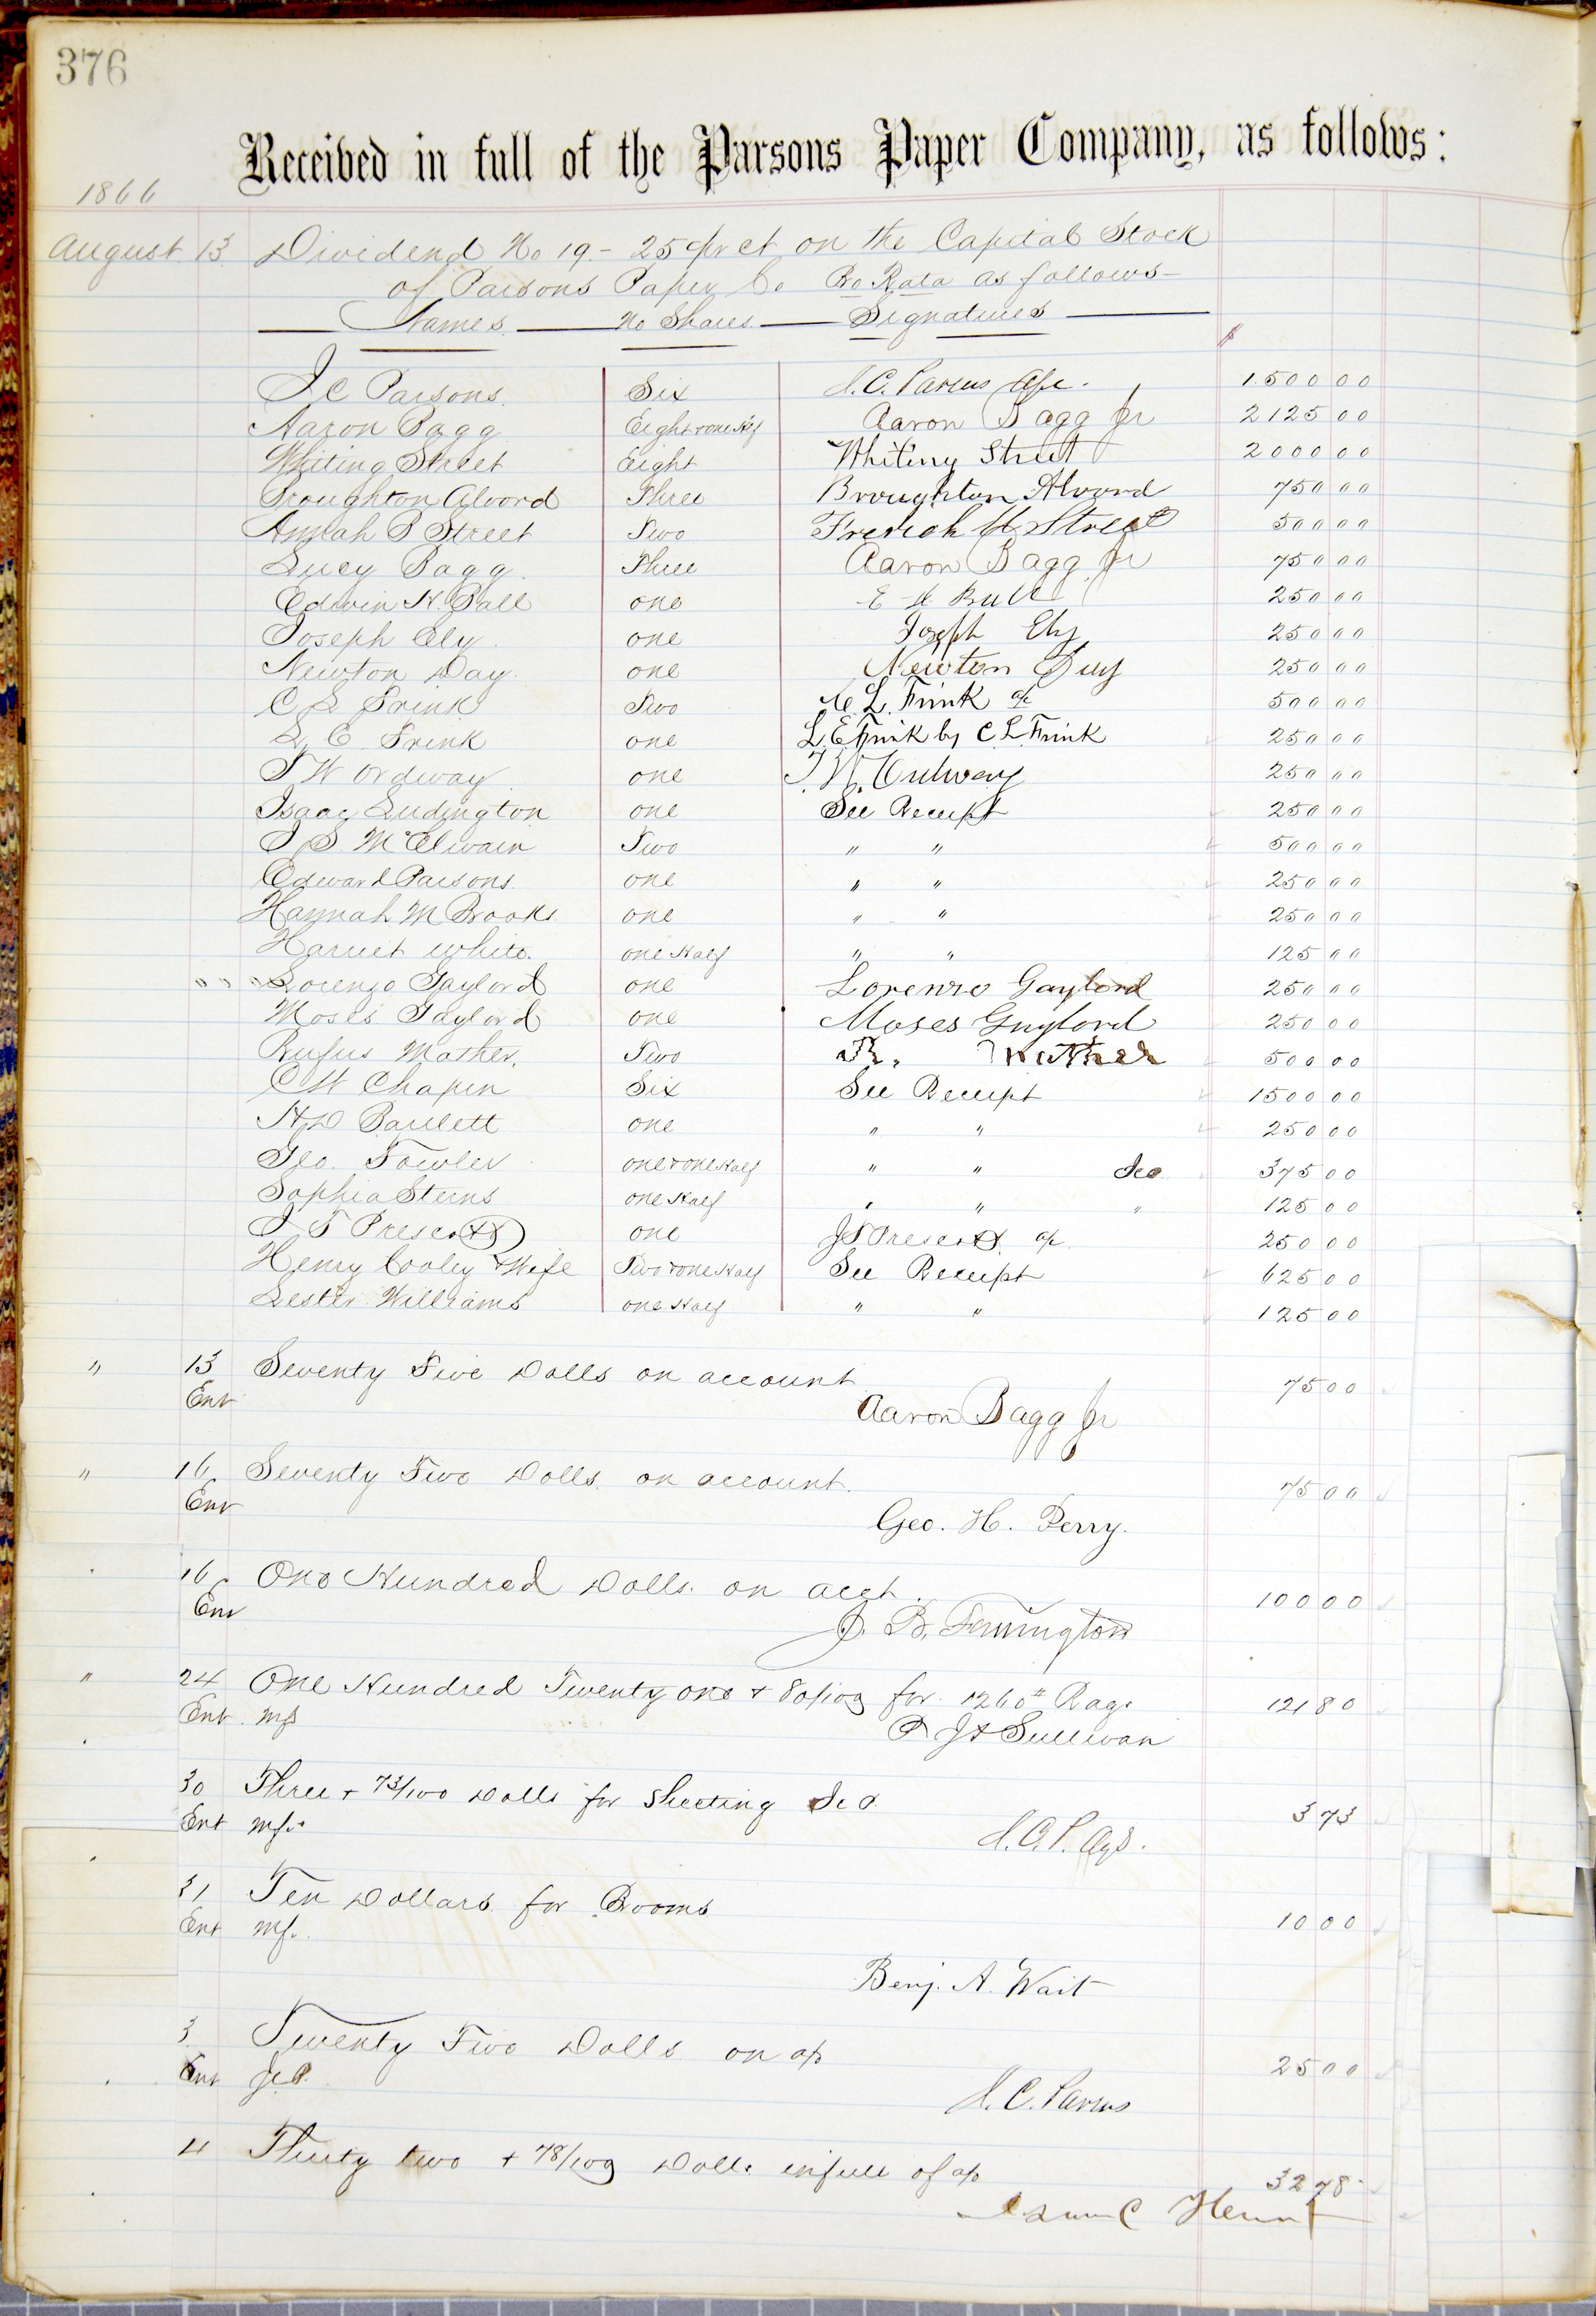 376
Received in full of the Parsons Paper Company, as follows:
1866
August 13 Dividend No 19 - 25 pr ct on the Capital Stock
of Parsons Paper Co Pro Rata as follows
Names No Shares Signatures $
J C Parsons Six J. C. Parsons 1500 00
Aaron Bagg Eight & one Hlf Aaron Bagg Jr 2125 00
Whiting Street Eight Whiting Street 2000 00
Broughton Alvord Three Broughton Alvord 750 00
Annah B Street Two Street 500 00
Lucy Bagg Three Aaron Bagg Jr 750 00
Edwin H. Ball one E H Ball 250 00
Joseph Ely one Joseph Ely 250 00
Newton Day one Newton Day 250 00
C L Frink Two C. L. Frink 500 00
L E Frink one L E Frink by C L Frink 250 00
T W Ordway one T. W. Ordway 250 00
Isaac Ludington one See Receipt 250 00
J S McElwain Two " " 500 00
Edward Parsons one " " 250 00
Hannah M Brooks one " " 250 00
Harriet White one Half " " 125 00
" " " Lorenzo Gaylord one Lorenzo Gaylord 250 00
Moses Gaylord one Moses Gaylord 250 00
Rufus Mather Two R. Mather 500 00
C W Chapin Six See Receipt 1500 00
H D Bartlett one " " 250 00
Geo. Fowler one & one Half " " 375 00
Sophia Sterns one Half " " " 125 00
J T Prescott one J T Prescott 250 00
Henry Cooley & Wife Two & one Half See Receipt 625 00
Lester Williams one Half " " 125 00
" 13 Seventy Five Dolls on account 75 00
Ent Aaron Bagg Jr
" 16 Seventy Five Dolls. on account. 75 00
Ent Geo. H. Perry.
16 One Hundred Dolls. on acct. 100 00
Ent J. B.
" 24 One Hundred Twenty one & 80/100 for 1260# Rags 121 80
Ent Mfs Sullivan
30 Three & 73/100 Dolls for Sheeting 3 73
Ent Mfs J. C. P.
31 Ten Dollars for Brooms 10 00
Ent Mfs.
Benj. A. Wait
3 Twenty Five Dolls on a/c 25 00
Ent J C P. J. C. Parsons
4 Thirty two & 78/100 Dolls in full of a/c 32 78